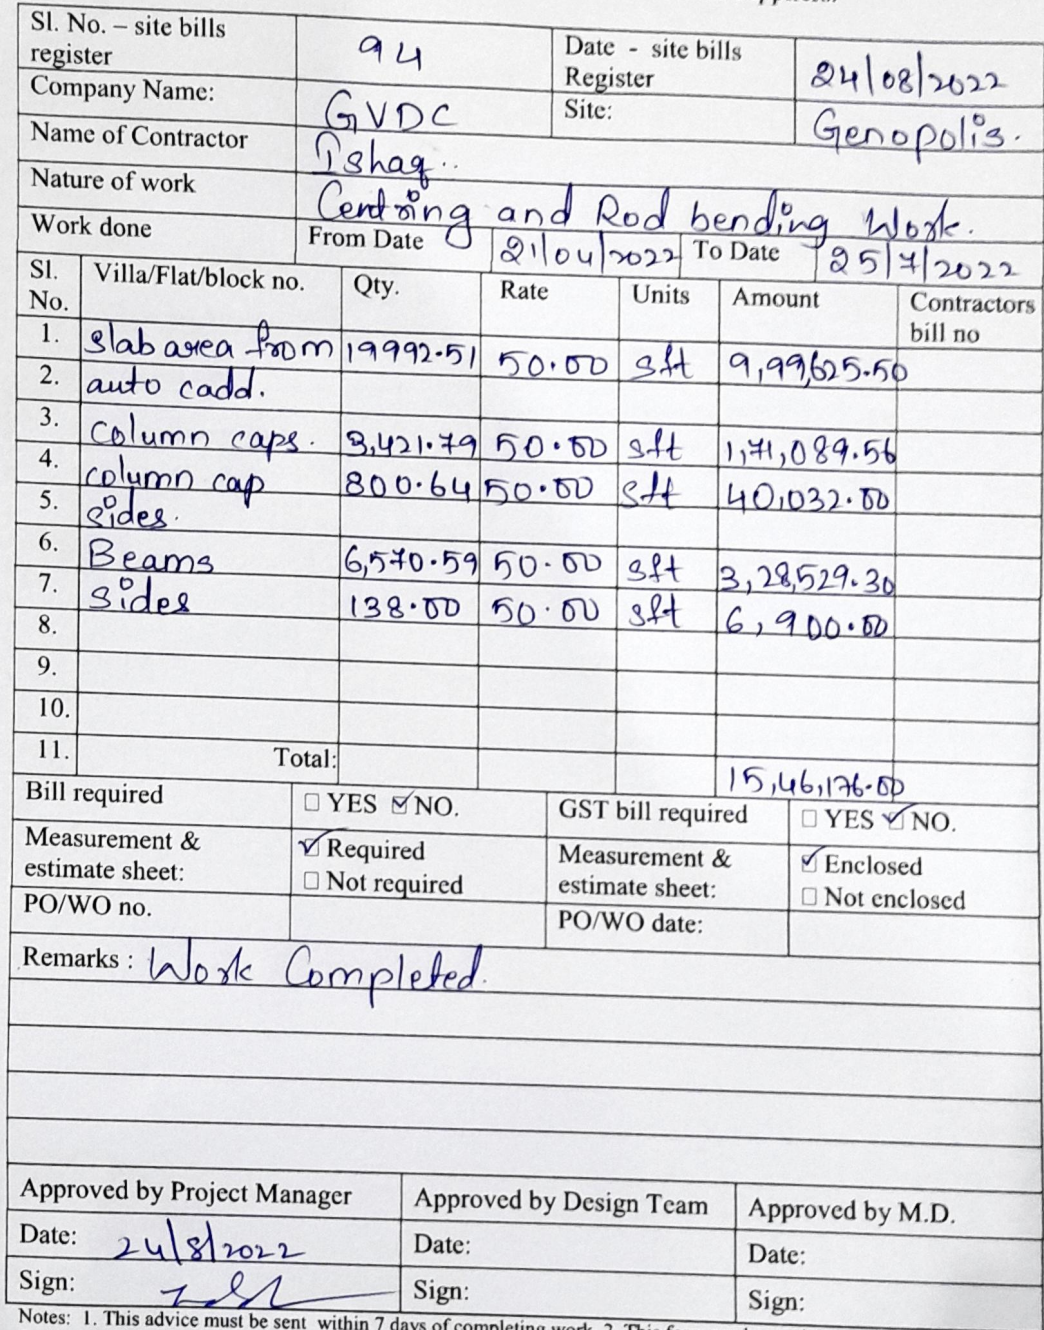 Sl. No. – site bills register 94 Date - site bills Register 24/08/2022
Company Name: GVDC Site: Genopolis.
Name of Contractor Ishaq..
Nature of work Centring and Rod bending Work.
Work done From Date 21/04/2022 To Date 25/7/2022
Sl. No. Villa/Flat/block no. Qty. Rate Units Amount Contractors bill no
1. Slab area from 19992.51 50.00 sft 9,99,625.50
2. auto cadd.
3. Column caps. 3,421.79 50.00 sft 1,71,089.56
4. column cap 800.64 50.00 sft 40,032.00
5. sides.
6. Beams 6,570.59 50.00 sft 3,28,529.30
7. sides 138.00 50.00 sft 6,900.00
8.
9.
10.
11. Total: 15,46,176.00
Bill required ☐ YES ☑ NO. GST bill required ☐ YES ☑ NO.
Measurement & estimate sheet: ☑ Required ☐ Not required Measurement & estimate sheet: ☑ Enclosed ☐ Not enclosed
PO/WO no. PO/WO date:
Remarks : Work Completed.
Approved by Project Manager Approved by Design Team Approved by M.D.
Date: 24/8/2022 Date: Date:
Sign: Sign: Sign:
Notes: 1. This advice must be sent within 7 days of completing work. 2. This